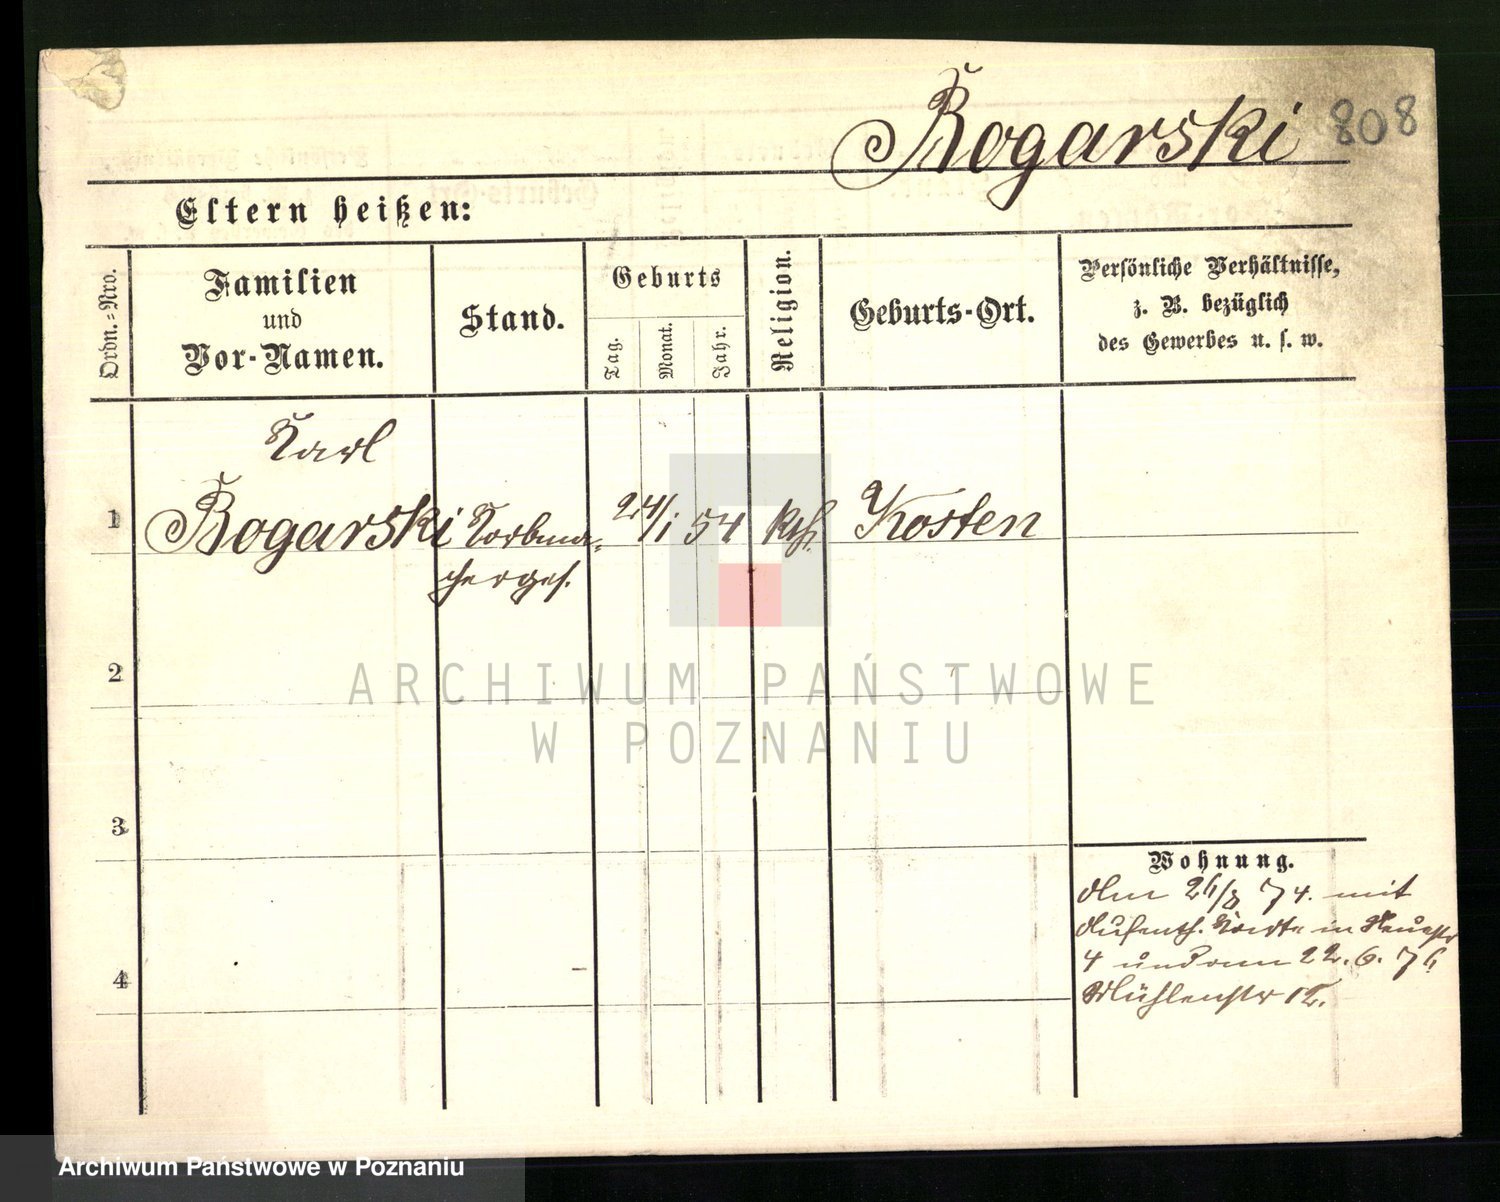 Bogarski 808
Eltern heißen:
Ordn.=Nro.
Familien
und
Vor-Namen.
Stand.
Geburts
Tag.
Monat.
Jahr.
Religion.
Geburts-Ort.
Persönliche Verhältnisse,
z. B. bezüglich
des Gewerbes u. s. w.
Karl
1 Bogarski Korbma- 24/1 54 kth. Kosten
cherges.
2
3
4
Wohnung.
74. mit
Aufenth. Karte in
4 und am 22. 6. 76
Mühlenstr
ARCHIWUM PAŃSTWOWE
W POZNANIU
Archiwum Państwowe w Poznaniu